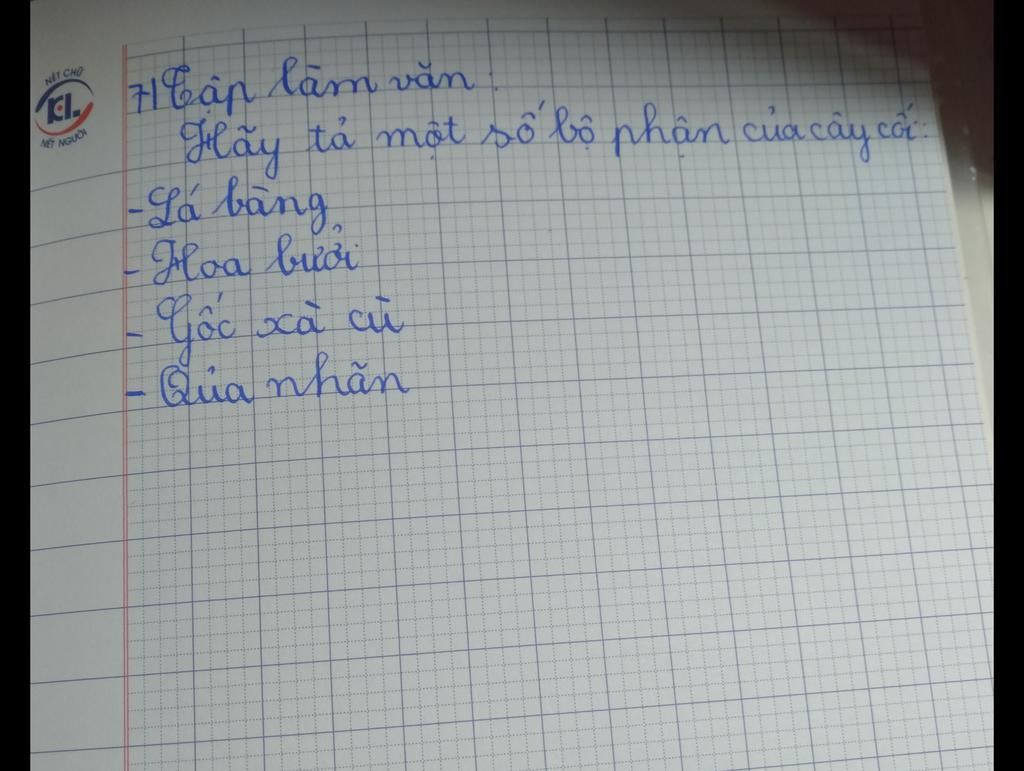 NÉT CHỮ
KL
NÉT NGƯỜI
7) Tập làm văn.
Hãy tả một số bộ phận của cây cối:
- Lá bàng
- Hoa bưởi
- Gốc xà cừ
- Qủa nhãn